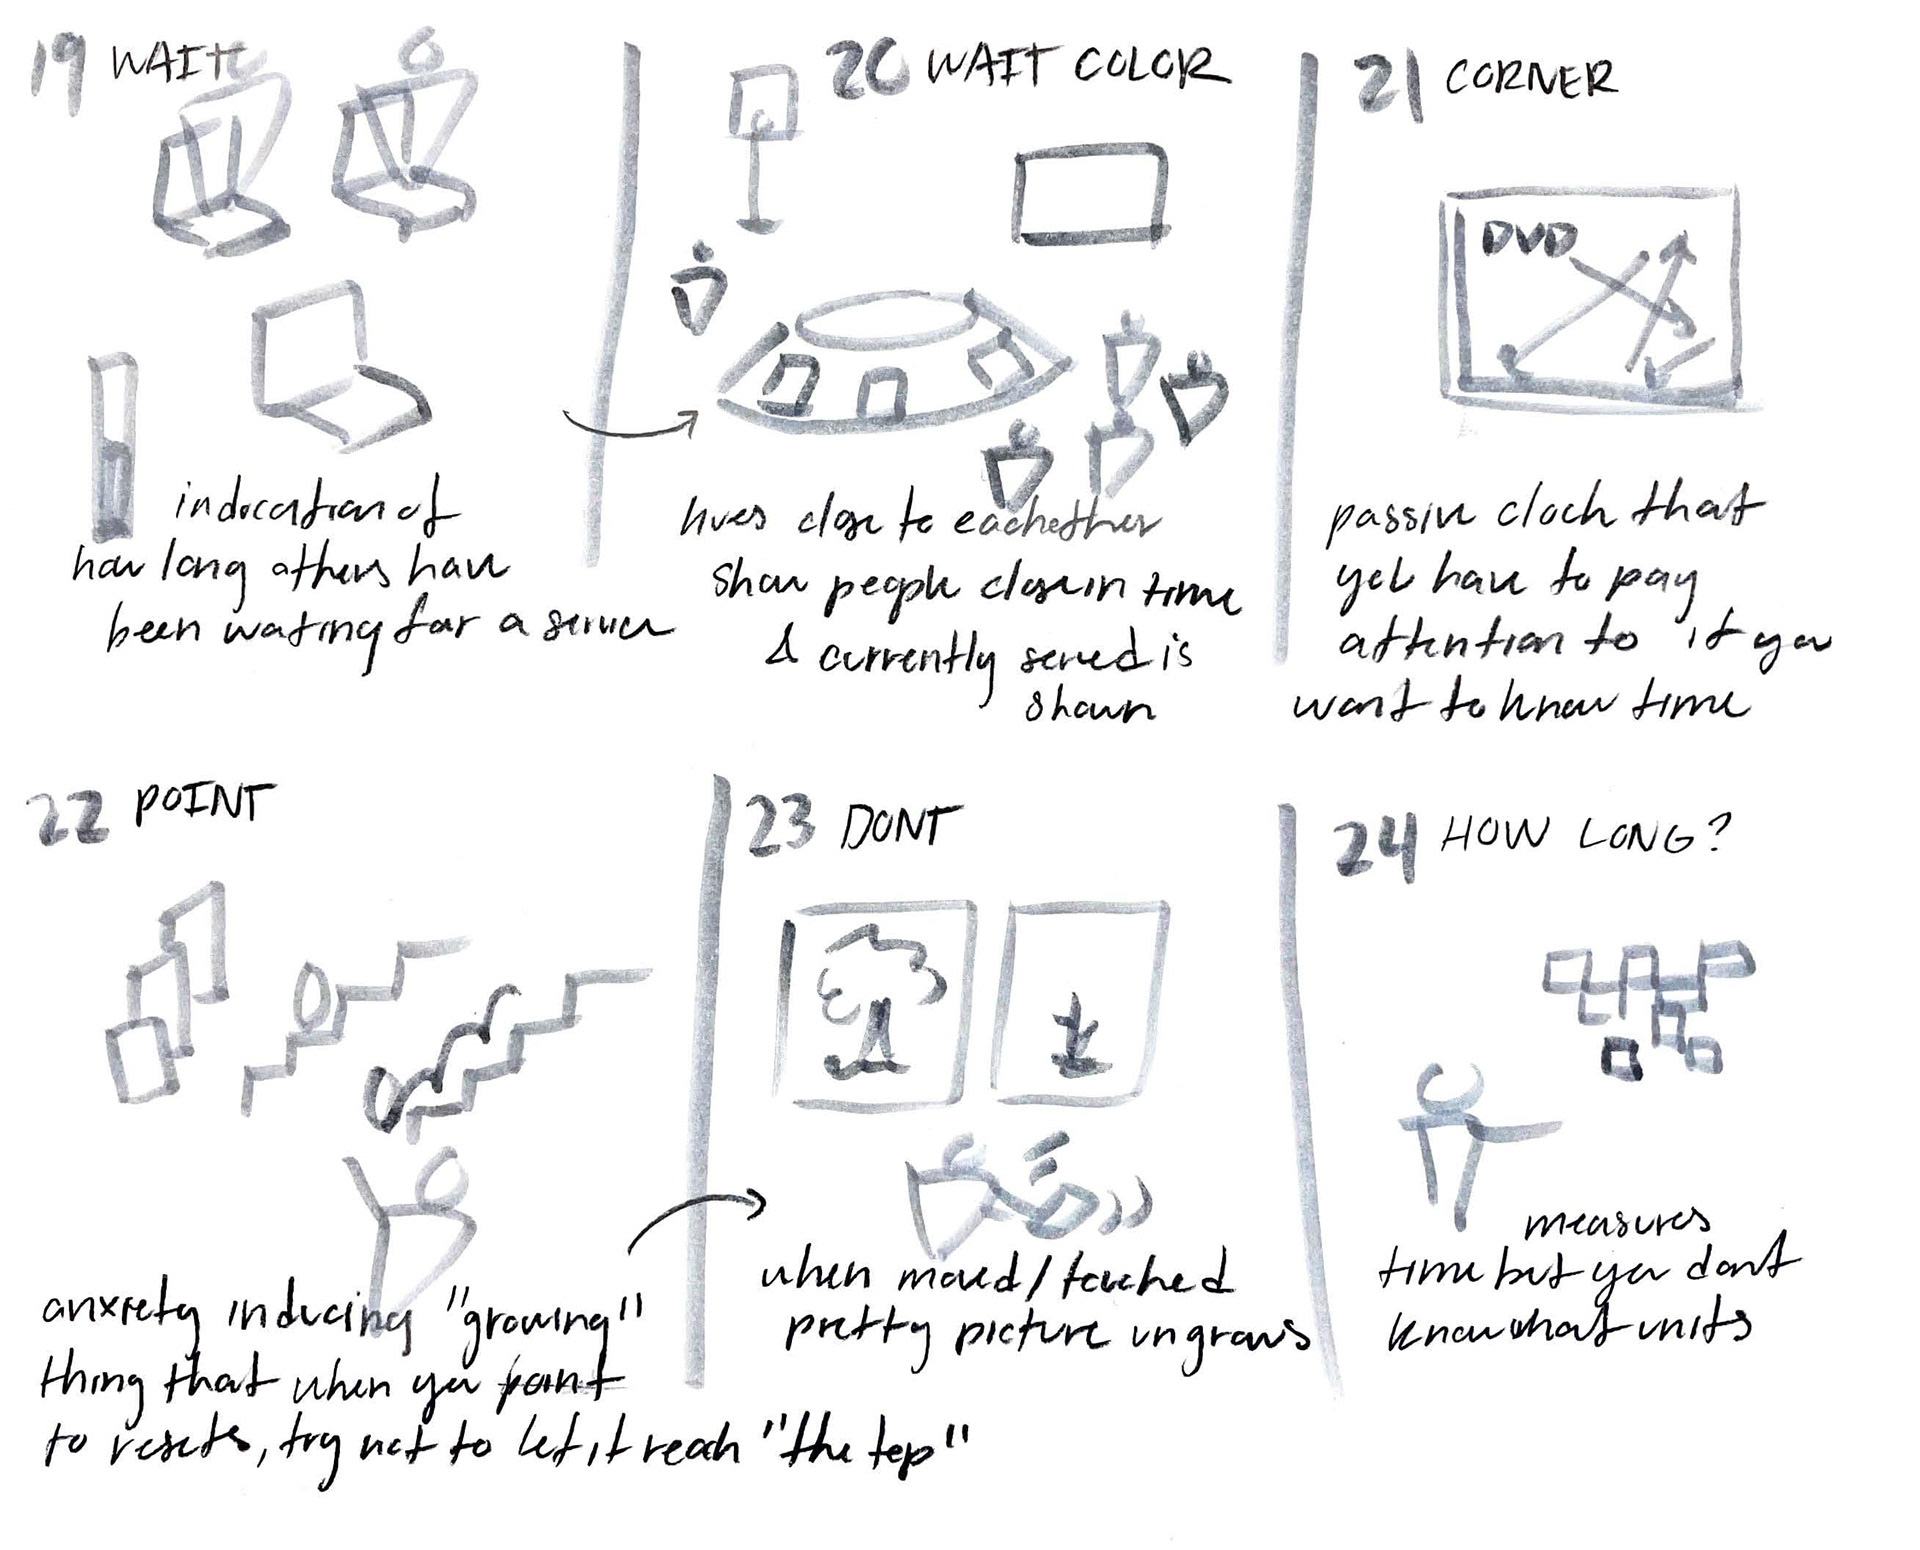 19 WAIT
indication of
how long others have
been waiting for a service
20 WAIT COLOR
hues close to eachother
show people close in time
& currently served is
shown
21 CORNER
DVD
passive clock that
you have to pay
attention to if you
want to know time
22 POINT
anxiety inducing "growing"
thing that when you point
to resets, try not to let it reach "the top"
23 DONT
when moved/touched
pretty picture ungrows
24 HOW LONG?
measures
time but you dont
know what units